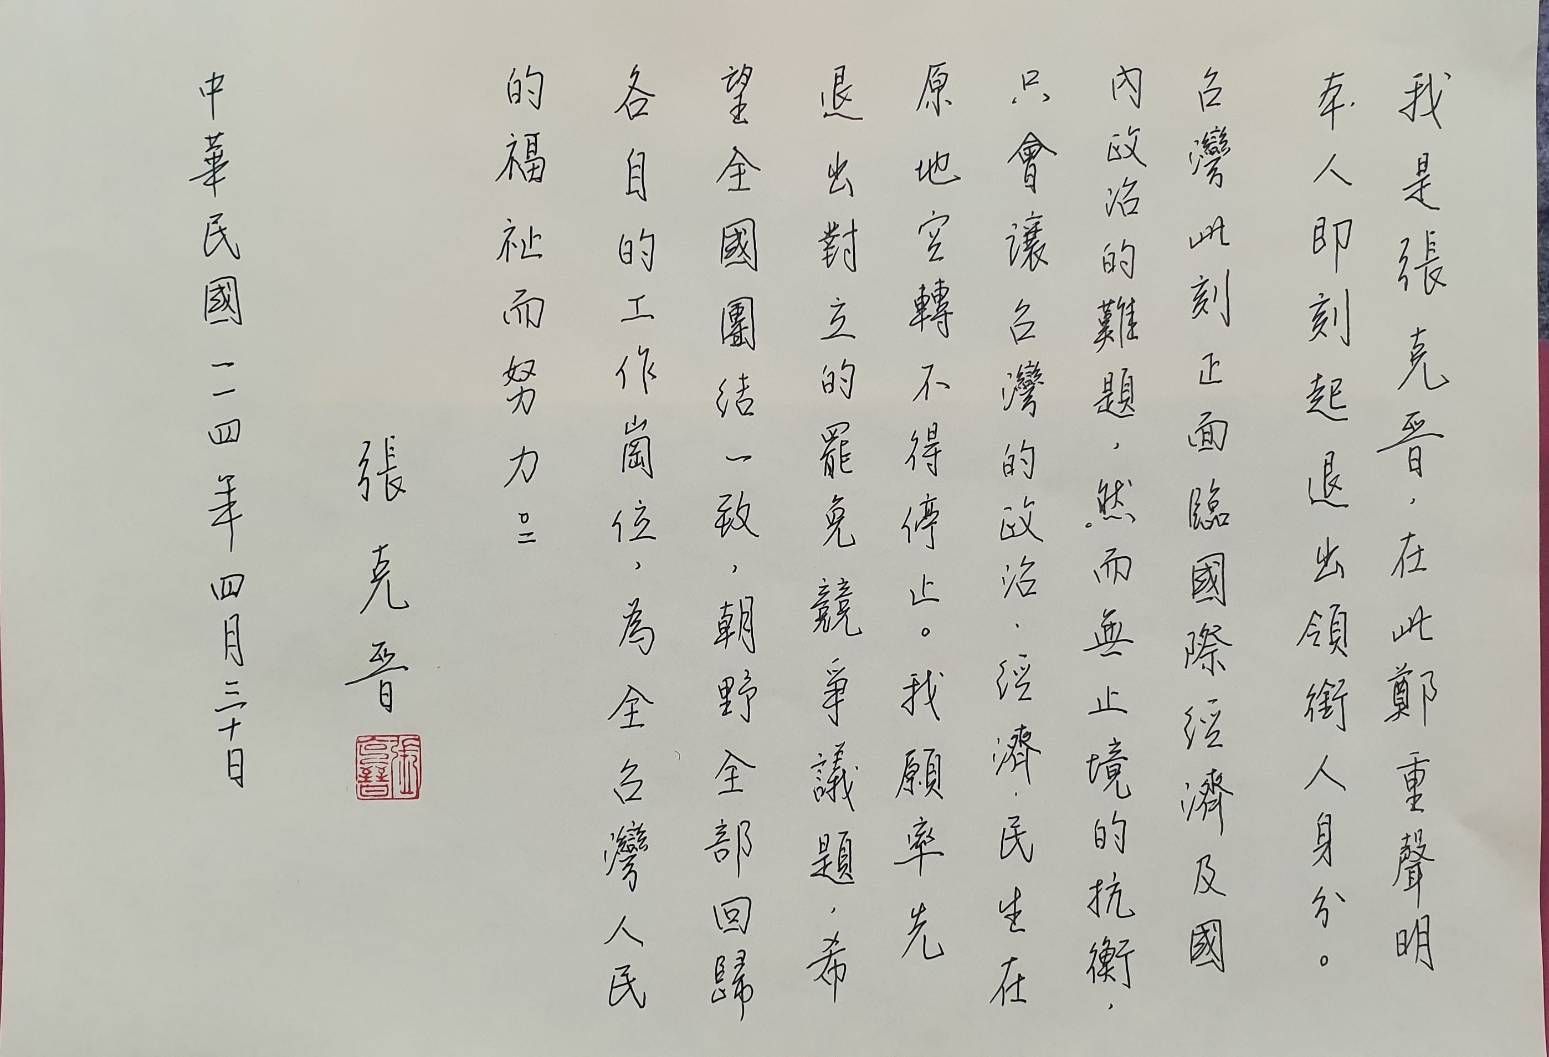 我是張克晉，在此鄭重聲明
本人即刻起退出領銜人身分。
台灣此刻正面臨國際經濟及國
內政治的難題，然而無止境的抗衡，
只會讓台灣的政治．經濟．民生在
原地空轉不得停止。我願率先
退出對立的罷免競爭議題，希
望全國團結一致，朝野全部回歸
各自的工作崗位，為全台灣人民
的福祉而努力。
張克晉
中華民國一一四年四月三十日